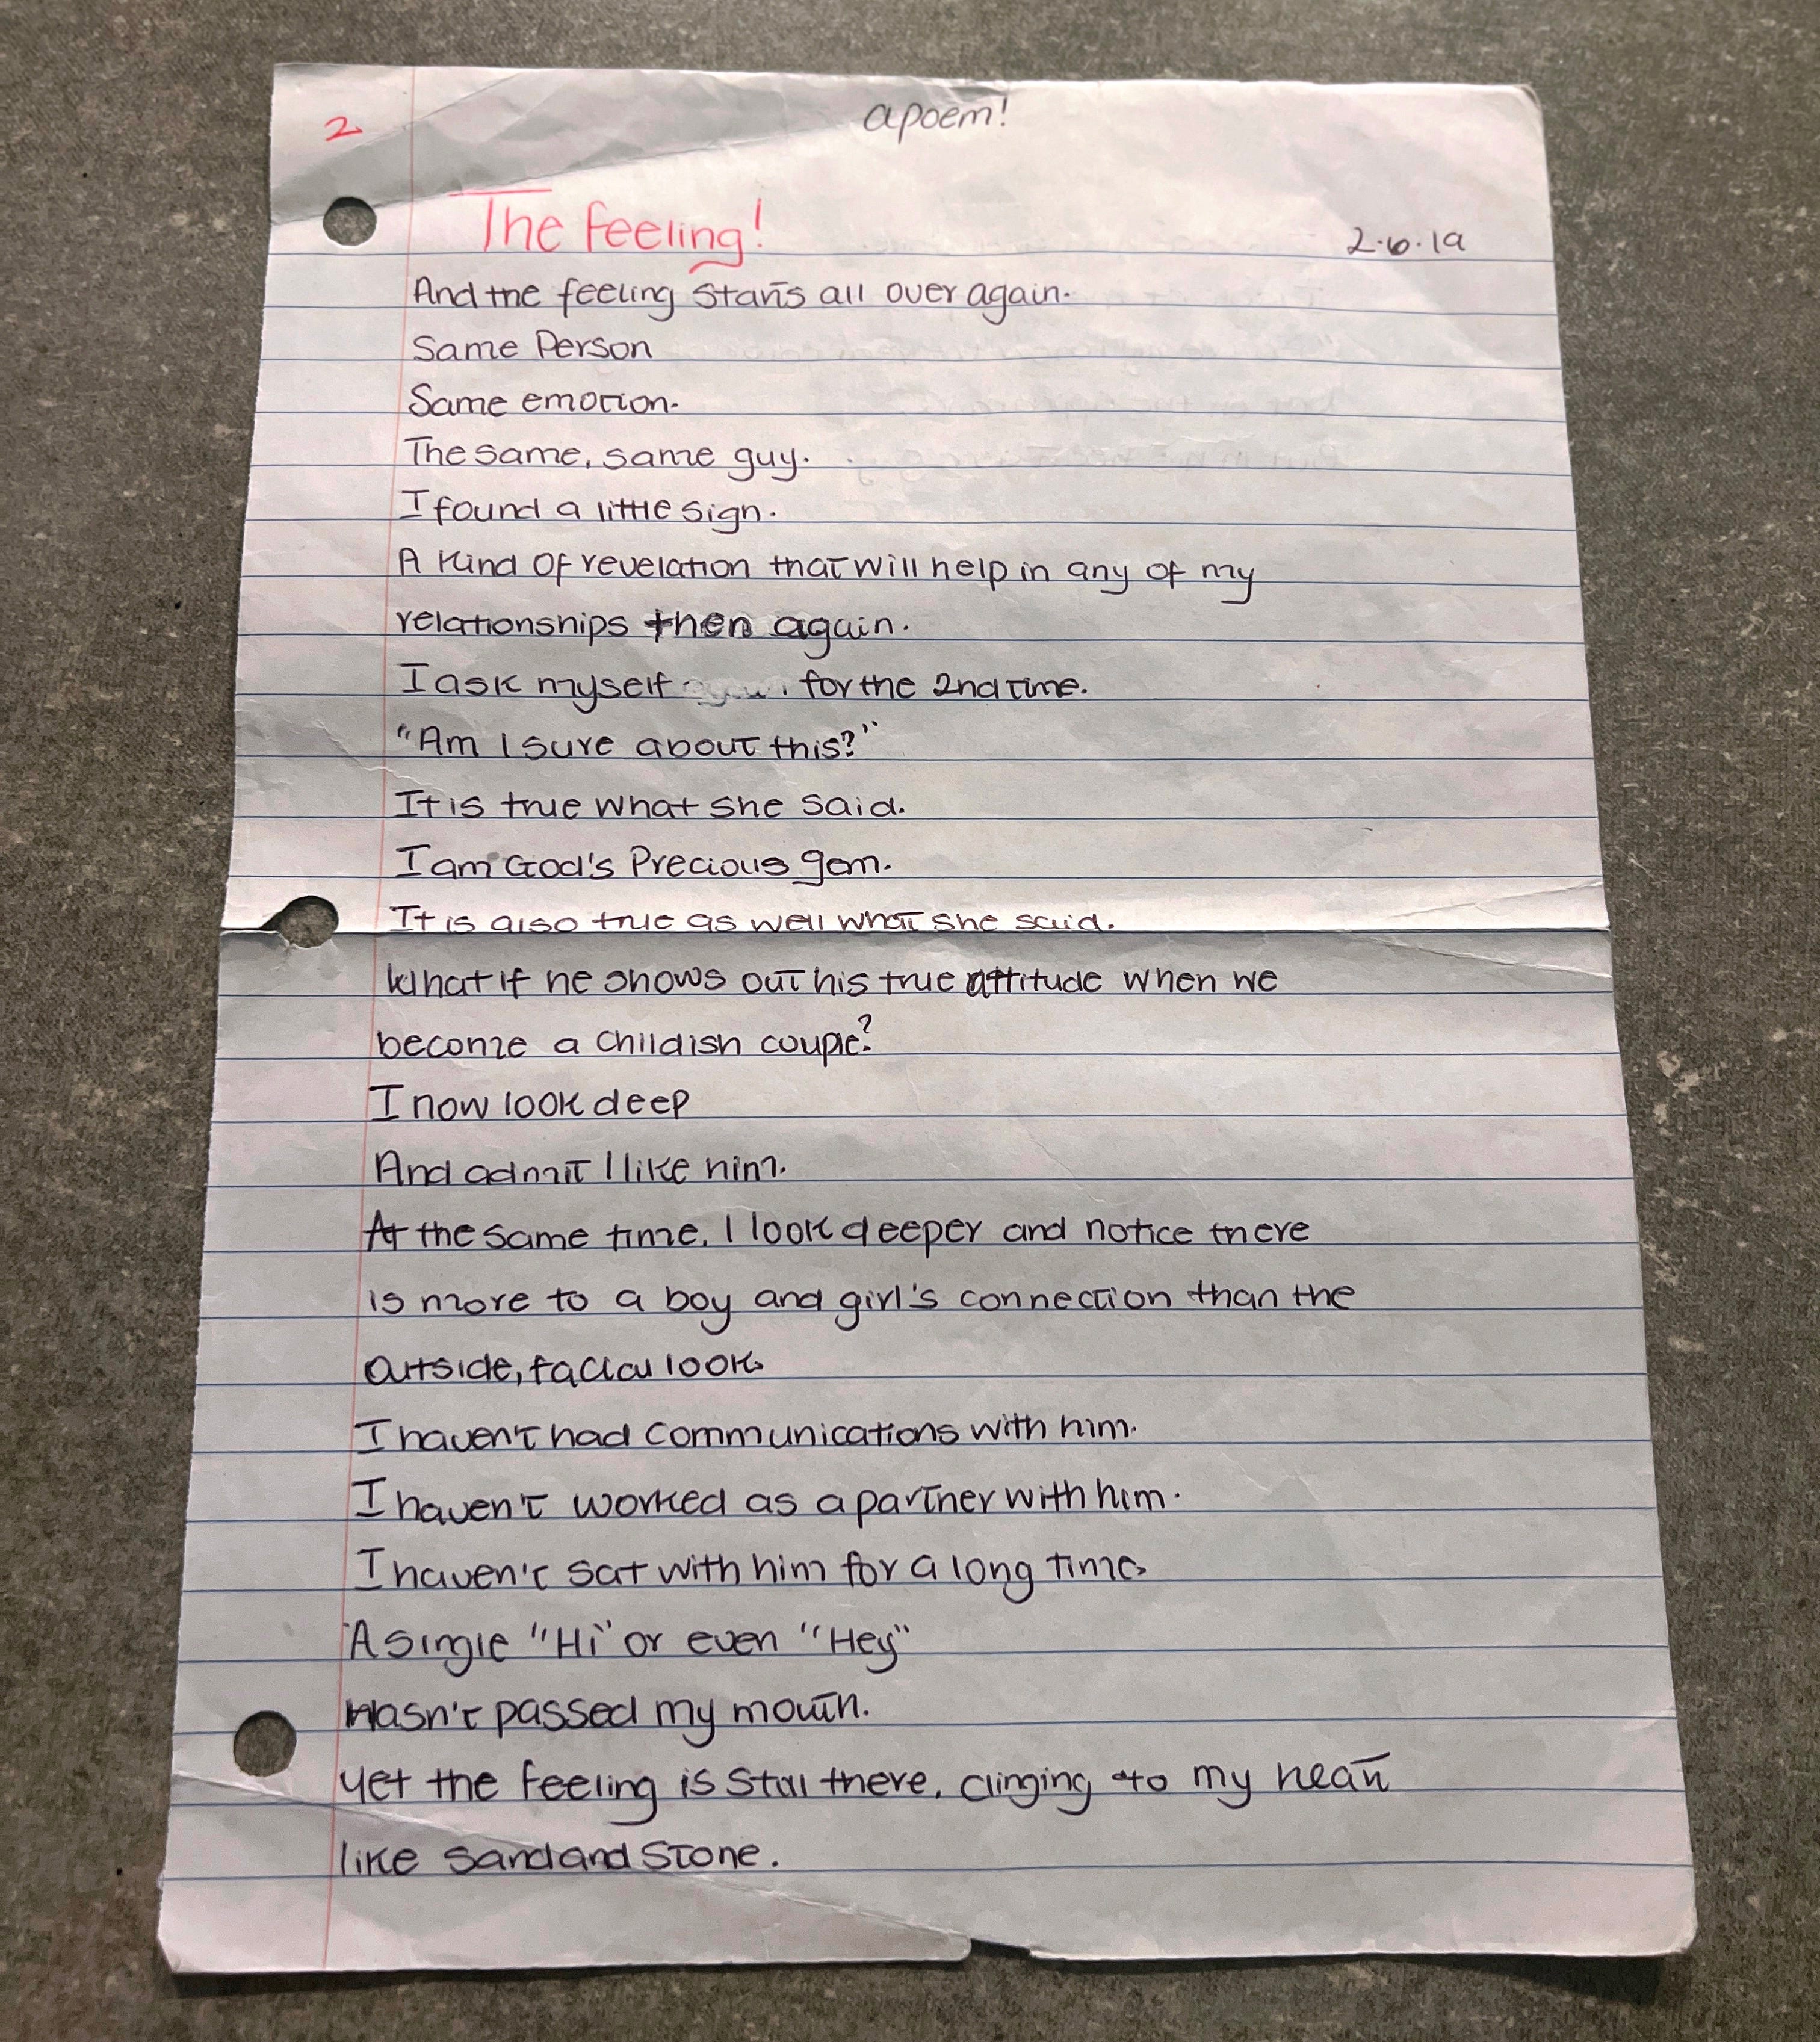 a poem!
2
The Feeling!
2.6.19
And the feeling starts all over again.
Same Person
Same emotion.
The same, same guy.
I found a little sign.
A Kind Of revelation that will help in any of my
relationships then again.
I ask myself for the 2nd time.
"Am I sure about this?"
It is true what she said.
I am God's Precious gem.
It is also true as well what she said.
What if he shows out his true attitude when we
become a childish couple?
I now look deep
And admit I like him.
At the same time, I look deeper and notice there
is more to a boy and girl's connection than the
outside, facial look.
I haven't had communications with him.
I haven't worked as a partner with him.
I haven't sat with him for a long time.
A single "Hi" or even "Hey"
Hasn't passed my mouth.
Yet the feeling is still there, clinging to my heart
like sand and stone.